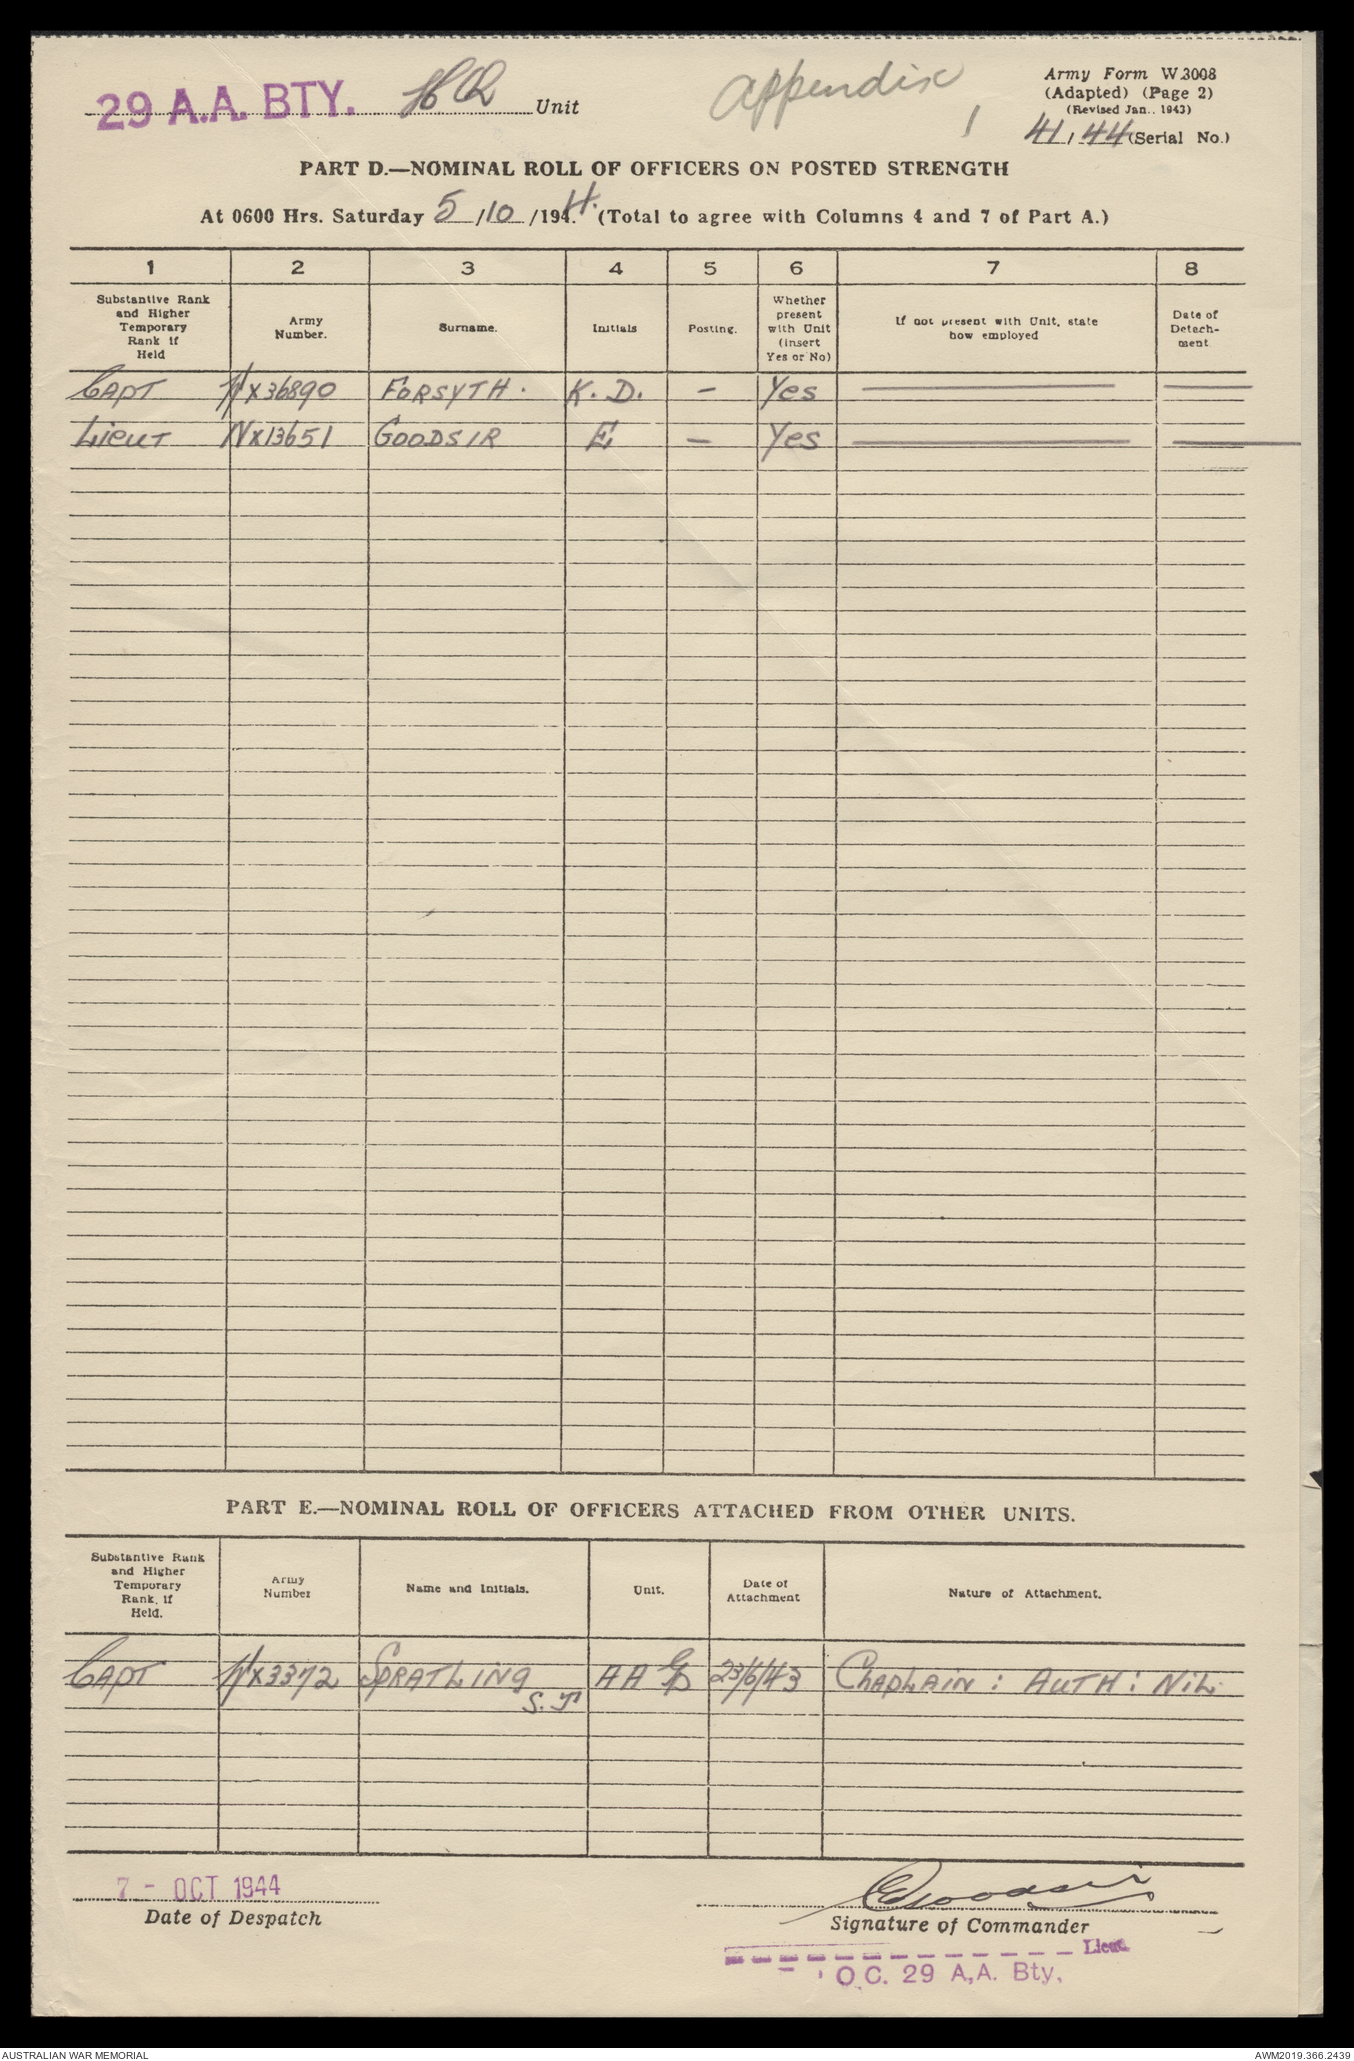 29 A.A. BTY. HQ Unit
Appendix 1
Army Form W.3008
(Adapted) (Page 2)
(Revised Jan.. 1943)
41/44 (Serial No.)
PART D.—NOMINAL ROLL OF OFFICERS ON POSTED STRENGTH
At 0600 Hrs. Saturday 5/10/1944. (Total to agree with Columns 4 and 7 of Part A.)
1 2 3 4 5 6 7 8
Substantive Rank
and Higher
Temporary
Rank if
Held
Army
Number.
Surname.
Initials
Posting.
Whether
present
with Unit
(insert
Yes or No)
If not present with Unit, state
how employed
Date of
Detach-
ment
CAPT NX36890 FORSYTH. K. D. — Yes
LIEUT NX13651 GOODSIR E — Yes
PART E.—NOMINAL ROLL OF OFFICERS ATTACHED FROM OTHER UNITS.
Substantive Rank
and Higher
Temporary
Rank, if
Held.
Army
Number
Name and Initials.
Unit.
Date of
Attachment
Nature of Attachment.
CAPT NX3372 SPRATLING AA 23/6/43 CHAPLAIN : AUTH : NIL.
S. J
7 - OCT 1944
Date of Despatch
EGoodsir
Signature of Commander
Lieut.
O.C. 29 A.A. Bty.
AUSTRALIAN WAR MEMORIAL
AWM2019.366.2439